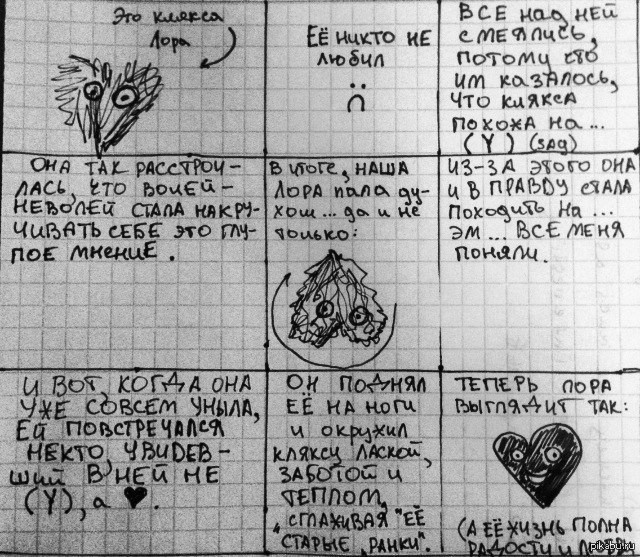 Это клякса
Лора
ЕЁ НИКТО НЕ
ЛЮБИЛ
:(
ВСЕ НАД НЕЙ
СМЕЯЛИСЬ,
ПОТОМУ ЧТО
ИМ КАЗАЛОСЬ,
ЧТО КЛЯКСА
ПОХОЖА НА...
(Y) (зад)
ОНА ТАК РАССТРОИ-
ЛАСЬ, ЧТО ВОЛЕЙ-
НЕВОЛЕЙ СТАЛА НАКРУ-
ЧИВАТЬ СЕБЕ ЭТО ГЛУ-
ПОЕ МНЕНИЕ.
В ИТОГЕ, НАША
ЛОРА ПАЛА ДУ-
ХОМ... ДА И НЕ
ТОЛЬКО:
ИЗ-ЗА ЭТОГО ОНА
И В ПРАВДУ СТАЛА
ПОХОДИТЬ НА...
ЭМ... ВСЕ МЕНЯ
ПОНЯЛИ.
И ВОТ, КОГДА ОНА
УЖЕ СОВСЕМ УНЫЛА,
ЕЙ ПОВСТРЕЧАЛСЯ
НЕКТО, УВИДЕВ-
ШИЙ В НЕЙ НЕ
(Y), а ♥.
ОН ПОДНЯЛ
ЕЁ НА НОГИ
И ОКРУЖИЛ
КЛЯКСУ ЛАСКОЙ,
ЗАБОТОЙ И
ТЕПЛОМ,
СГЛАЖИВАЯ "ЕЁ
СТАРЫЕ РАНКИ"
ТЕПЕРЬ ЛОРА
ВЫГЛЯДИТ ТАК:
(А ЕЁ ЖИЗНЬ ПОЛНА
РАДОСТИ И
pikabu.ru